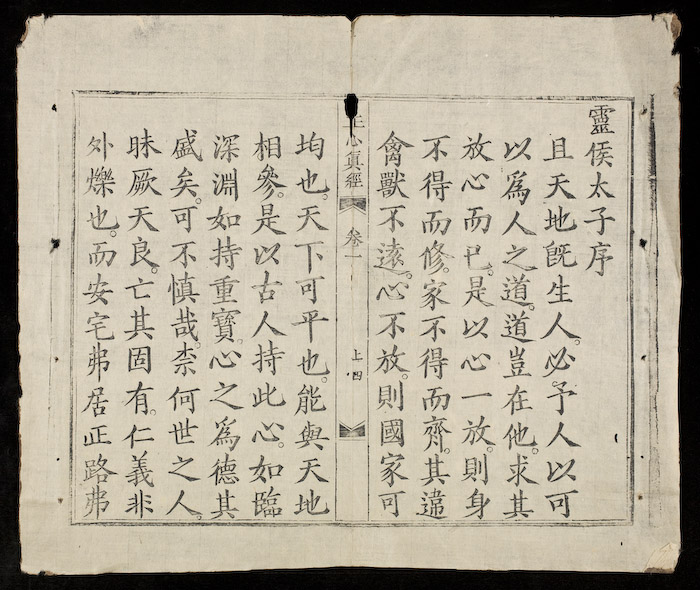 靈侯太子序
且天地旣生人。必予人以可
以爲人之道。道豈在他。求其
放心而已。是以心一放。則身
不得而修。家不得而齊。其違
禽獸不遠。心不放。則國家可
心眞經 卷一 上四
均也。天下可平也。能與天地
相參。是以古人持此心。如臨
深淵如持重寶。心之爲德其
盛矣。可不慎哉。柰何世之人。
昧厥天良。亡其固有。仁義非
外爍也。而安宅弗居正路弗